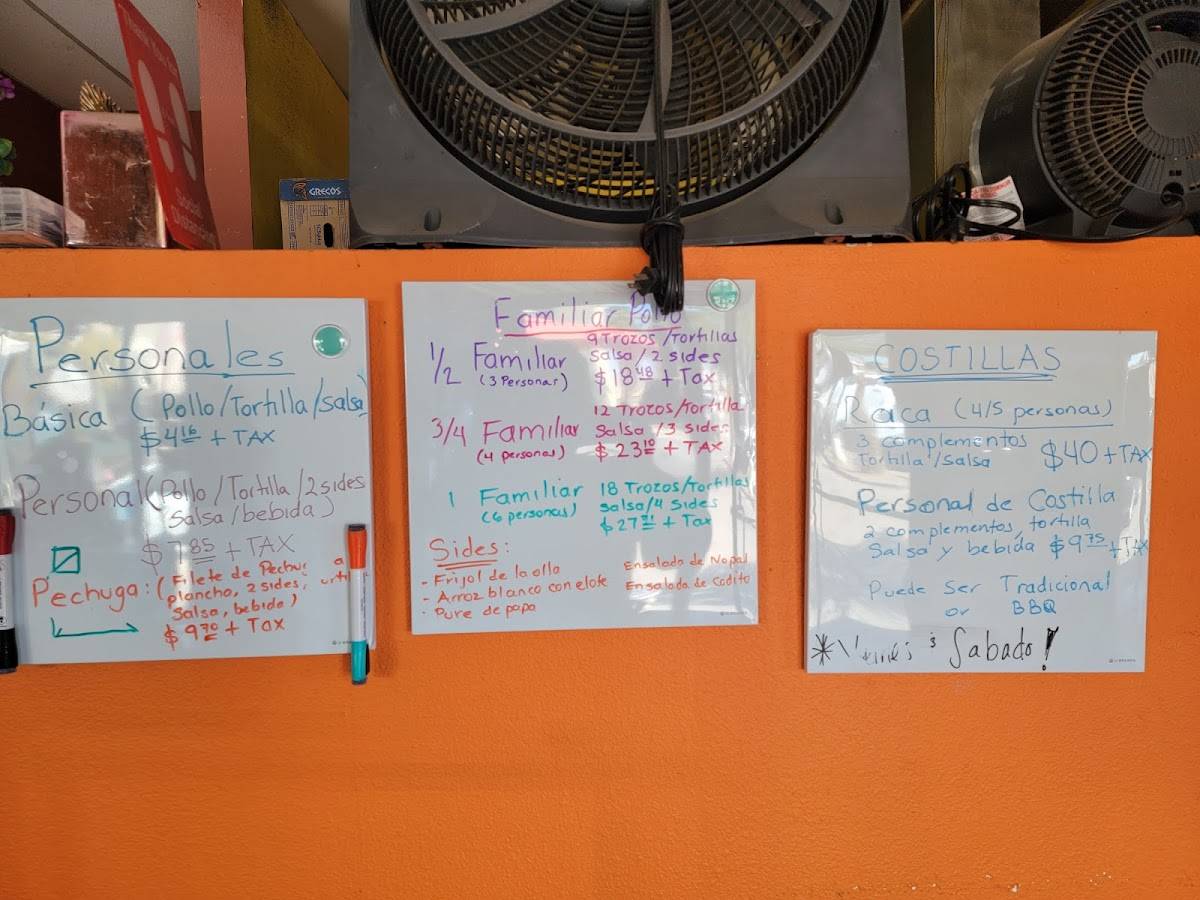 GRECOS
Personales
Básica (Pollo/Tortilla/Salsa)
$4.16 + TAX
Personal (Pollo/Tortilla/2 sides
Salsa/bebida)
$7.85 + TAX
Pechuga: (Filete de Pechu a
plancha, 2 sides,
Salsa, bebida)
$9.70 + Tax
Familiar Pollo
1/2 Familiar
(3 Personas)
9 Trozos/Tortillas
Salsa/2 sides
$18.48 + Tax
3/4 Familiar
(4 personas)
12 Trozos/Tortilla
Salsa/3 sides
$23.10 + TAX
1 Familiar
(6 personas)
18 Trozos/Tortillas
Salsa/4 Sides
$27.71 + Tax
Sides:
- Frijol de la olla
- Arroz blanco con elote
- Pure de papa
Ensalada de Nopal
Ensalada de Codito
COSTILLAS
Raca (4/5 personas)
3 complementos
Tortilla/Salsa
$40 + TAX
Personal de Costilla
2 complementos, tortilla
Salsa y bebida $9.75 + TAX
Puede Ser Tradicional
or BBQ
* Sabado!